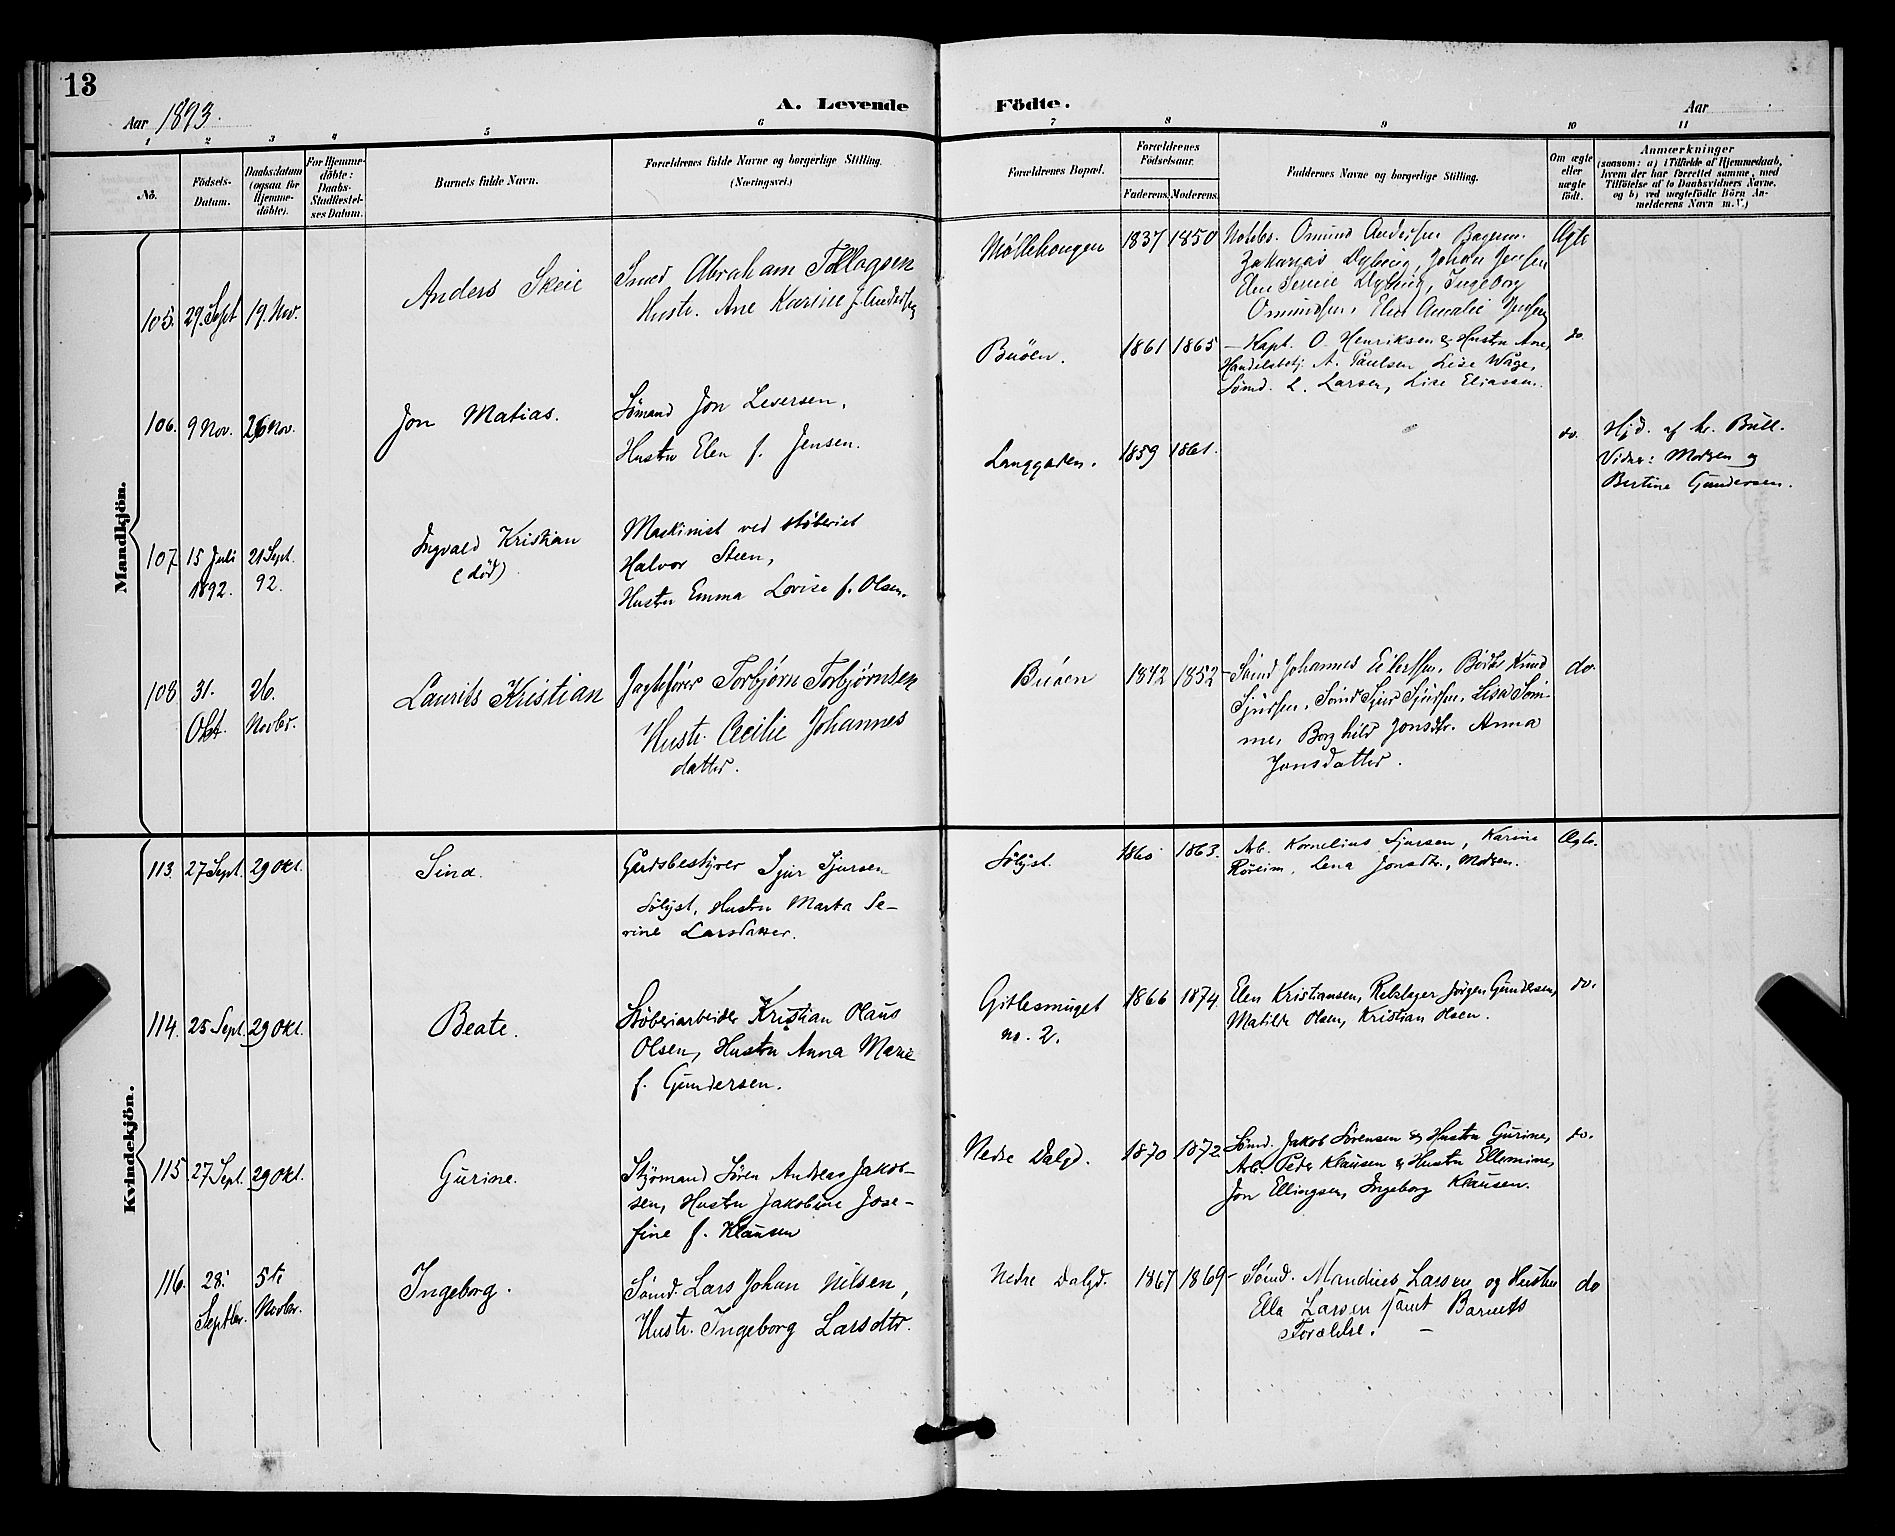 13
Aar 1893.
A. Levende Födte.
Aar
1 2 3 4 5 6 7 8 9 10 11
No.
Födsels-Datum.
Daabsdatum (ogsaa for Hjemme-döbte).
For Hjemme-döbte: Daabs-Stadfæstel-ses Datum.
Barnets fulde Navn.
Forældrenes fulde Navne og borgerlige Stilling.
(Næringsvei.)
Forældrenes Bopæl.
Forældrenes Födselsaar.
Faderens. Moderens.
Faddernes Navne og borgerlige Stilling.
Om ægte eller uægte födt.
Anmærkninger
(saasom: a) i Tilfælde af Hjemmedaab, hvem der har forrettet samme, med Tilföielse af to Daabsvidners Navne, og b) ved uægtefödte Börn An-melderens Navn m. V.)
Mandkjön.
105. 29. Sept 19. Nov.
Anders Skeie
Smed Abraham Tollagsen
Hustr. Ane Karine f. Andersen
Møllehougen
1837 1850
Omund Andersen
Zakarias Dybing, Johan Jensen
Elen Serine Dybing, Ingeborg
Omundsen, Elen Amalie Jensen
Ægte
106. 9 Nov. 26 Nov.
Jon Matias.
Sømand Jon Seversen,
Hustru Elen f. Jensen.
Buøen.
1861 1865
– Kapt. O. Henriksen & Hustru Ane,
Handelsbetj. A. Paulsen, Lise Wåge,
Sømd. L. Larsen, Lise Eliassen.
do.
107 15 Juli 1892. 21 Sept. 92.
Ingvald Kristian
(død)
Maskinist ved støberiet
Halvor Steen,
Hustru Emma Lovise f. Olsen.
Langgaden.
1859 1861.
do.
Hjd. af hr. Bull.
Vidner: Modren og
Bertine Gundersen.
108 31. Okt. 26. Novbr.
Laurits Kristian
Jagtefører Torbjørn Torbjørnsen
Hustr. Cecilie Johannes
datter.
Buøen
1842 1852
– Sømd Johannes Eilertsen, Knud
Sjursen, Sømd Sjur Sjursen, Lisa Søm-
me, Borghild Jonsdtr. Anna
Jonsdatter.
do.
Kvindekjön.
113. 27 Sept. 29 Okt.
Sina.
Gårdsbestyrer Sjur Sjursen
Sølyst, Hustru Marta Se-
rine Larsdatter.
Sølyst.
1865 1863.
Arb. Kornelius Sjursen, Karine
Røreim, Lena Jonsdtr., Modren.
Ægte.
114. 25 Sept. 29 Okt.
Beate.
Støberiarbeider Kristian Olaus
Olsen, Hustru Anna Marie
f. Gundersen.
Gitlesmuget
no. 2.
1866 1874.
Elen Kristiansen, Rebslager Jørgen Gundersen,
Matilde Olsen, Kristian Olsen.
do.
115 27 Sept. 29 Okt.
Gurine.
Styrmand Søren Andreas Jakob-
sen, Hustru Jakobine Jose-
fine f. Klausen
Nedre Dalgd.
1870 1872
Sømd. Jakob Sørensen & Hustru Gurine,
Arb. Peder Klausen & Hustru Ellemine,
Jon Ellingsen, Ingeborg Klausen.
do.
116. 28. Septbr. 5te Novbr.
Ingeborg.
Sømd. Lars Johan Nilsen,
Hustr. Ingeborg Larsdtr.
Nedre Dalgd.
1867 1869
– Sømd. Mandius Larsen og Hustru
Ella Larsen samt Barnets
Forældre. –
do